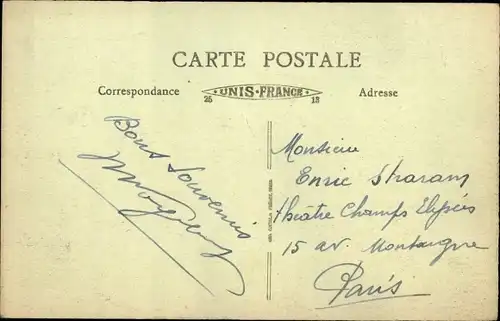 CARTE POSTALE
Correspondance
UNIS-FRANCE
25 13
Adresse
Bons Souvenirs
Monsieur
Enric Straram
théâtre Champs Elysées
15 av. Montaigne
Paris